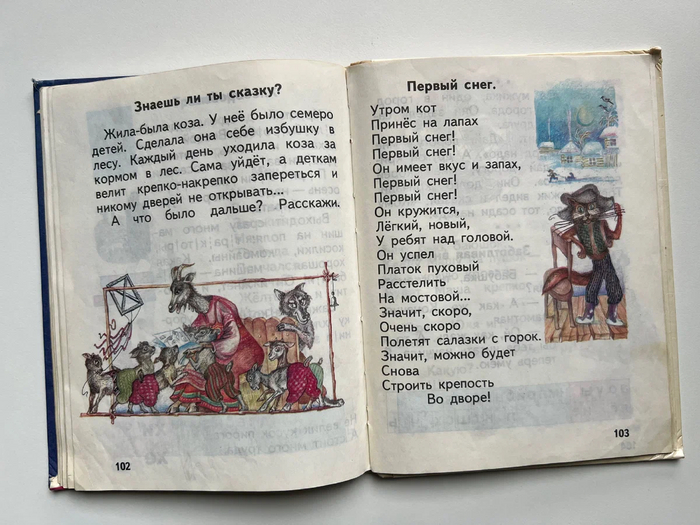 Знаешь ли ты сказку?
Жила-была коза. У неё было семеро
детей. Сделала она себе избушку в
лесу. Каждый день уходила коза за
кормом в лес. Сама уйдёт, а деткам
велит крепко-накрепко запереться и
никому дверей не открывать...
А что было дальше? Расскажи.
102
Первый снег.
Утром кот
Принёс на лапах
Первый снег!
Первый снег!
Он имеет вкус и запах,
Первый снег!
Первый снег!
Он кружится,
Лёгкий, новый,
У ребят над головой.
Он успел
Платок пуховый
Расстелить
На мостовой...
Значит, скоро,
Очень скоро
Полетят салазки с горок.
Значит, можно будет
Снова
Строить крепость
Во дворе!
103